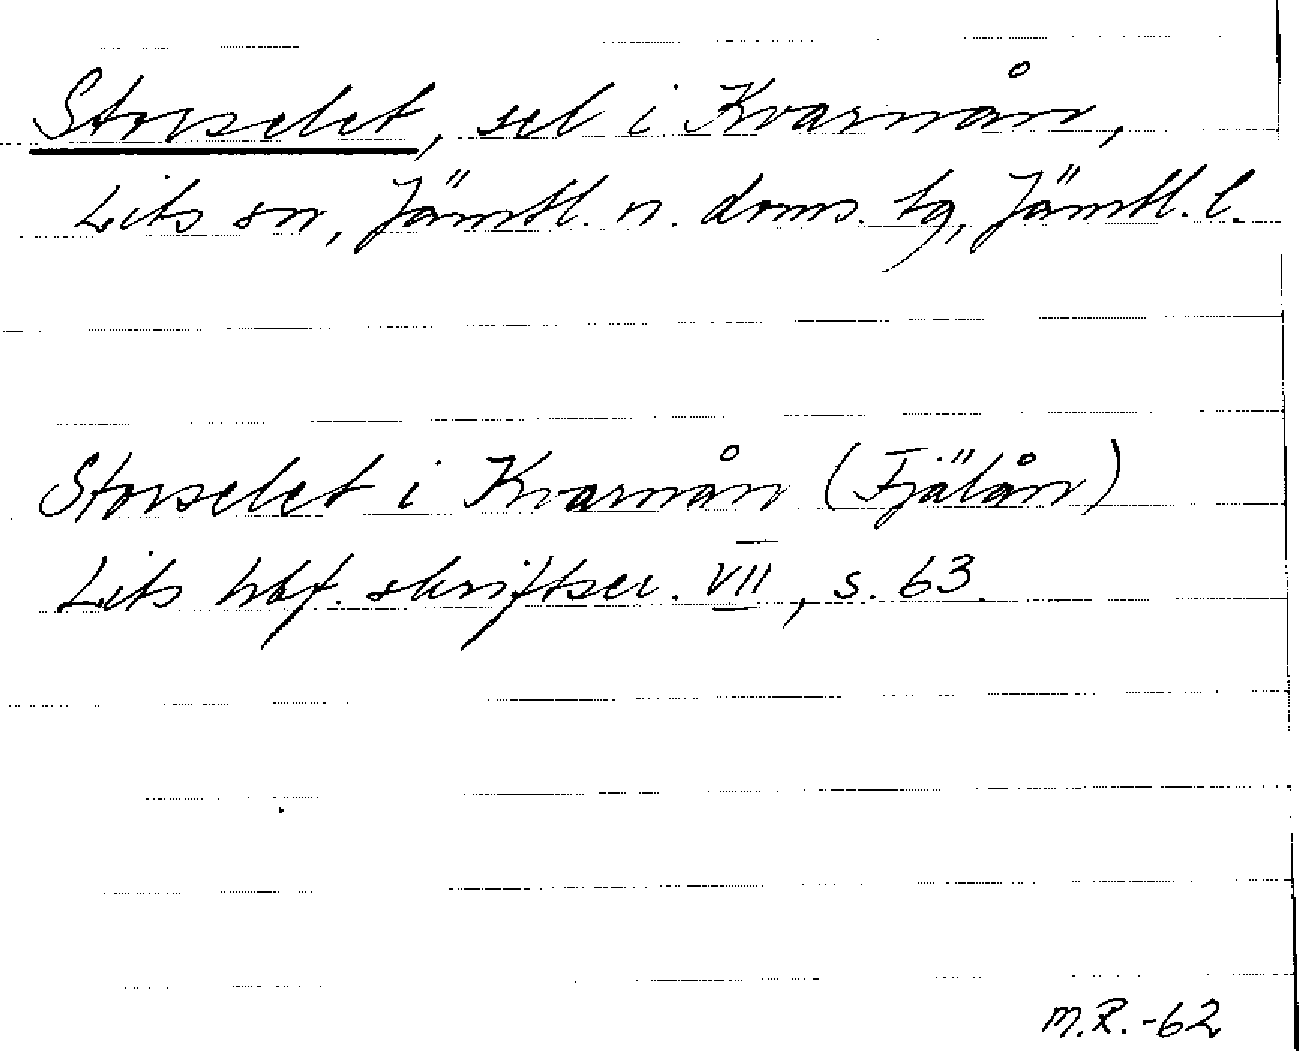 Storselet, sel i Kvarnån,
Lits sn, Jämtl. n. doms. tg, Jämtl. l.
Storselet i Kvarnån (Fjälån)
Lits hbf. skriftser. VII, s. 63.
M.R.-62